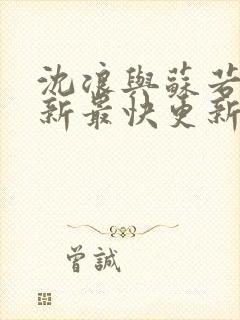 沈浪與蘇若
新最快更新
曾誠